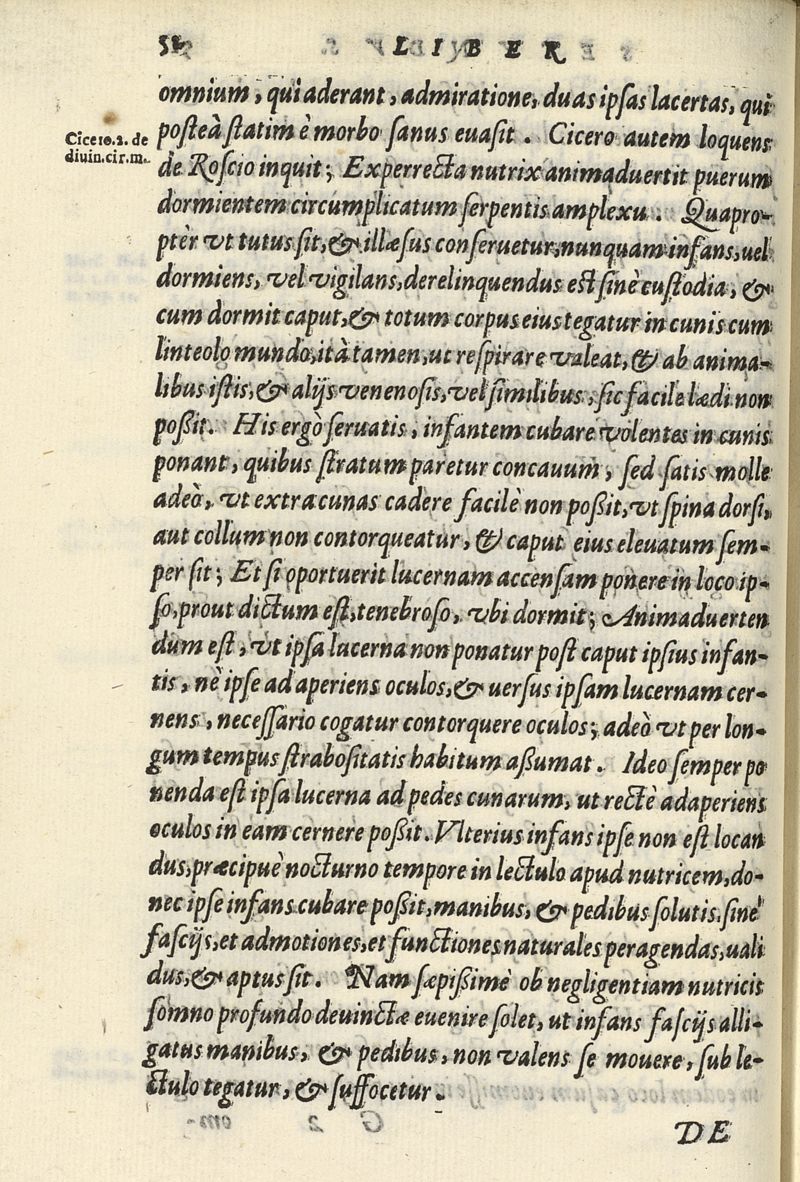 52 LIBER
omnium, qui aderant, admiratione, duas ipsas lacertas, qui
Cicero.2. de
diuin.cir.m.
posteà statim è morbo sanus euasit. Cicero autem loquens
de Roscio inquit; Experrecta nutrix animaduertit puerum
dormientem circumplicatum serpentis amplexu. Quapro-
ptèr vt tutus sit, & illæsus conseruetur, nunquam infans, uel
dormiens, vel vigilans, derelinquendus est sinè custodia, &
cum dormit caput, & totum corpus eius tegatur in cunis cum
linteolo mundo, ità tamen, ut respirare valeat, & ab anima-
libus istis, & alijs venenosis, vel similibus, sic facile lædi non
poßit. His ergò seruatis, infantem cubare volentes in cunis
ponant, quibus stratum paretur concauum, sed satis molle
adeò, vt extra cunas cadere facilè non poßit, vt spina dorsi,
aut collum non contorqueatur, & caput eius eleuatum sem-
per sit; Et si oportuerit lucernam accensam ponere in loco ip-
so, prout dictum est, tenebroso, vbi dormit; Animaduerten
dum est, vt ipsa lucerna non ponatur post caput ipsius infan-
tis, nè ipse adaperiens oculos, & uersus ipsam lucernam cer-
nens, necessario cogatur contorquere oculos; adeò vt per lon-
gum tempus strabositatis habitum aßumat. Ideo semper po
nenda est ipsa lucerna ad pedes cunarum, ut rectè adaperiens
oculos in eam cernere poßit. Vlterius infans ipse non est locan
dus, præcipuè nocturno tempore in lectulo apud nutricem, do-
nec ipse infans cubare poßit, manibus, & pedibus solutis, sinè
fascijs, et ad motiones, et functiones naturales peragendas, uali
dus, & aptus sit. Nam sæpißimè ob negligentiam nutricis
somno profundo deuinctæ euenire solet, ut infans fascijs alli-
gatus manibus, & pedibus, non valens se mouere, sub le-
ctulo tegatur, & suffocetur.
DE